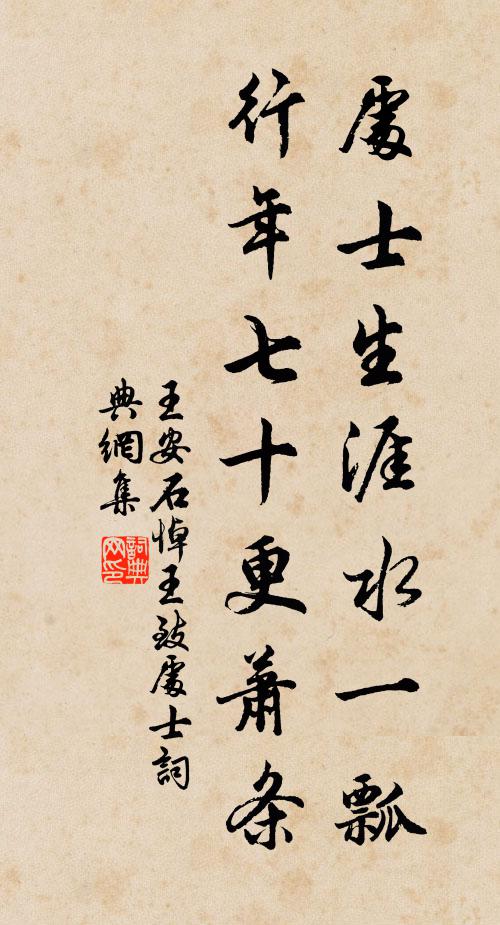 處士生涯水一瓢
行年七十更蕭条
王安石悼王致處士詞
典網集
詞典
网印